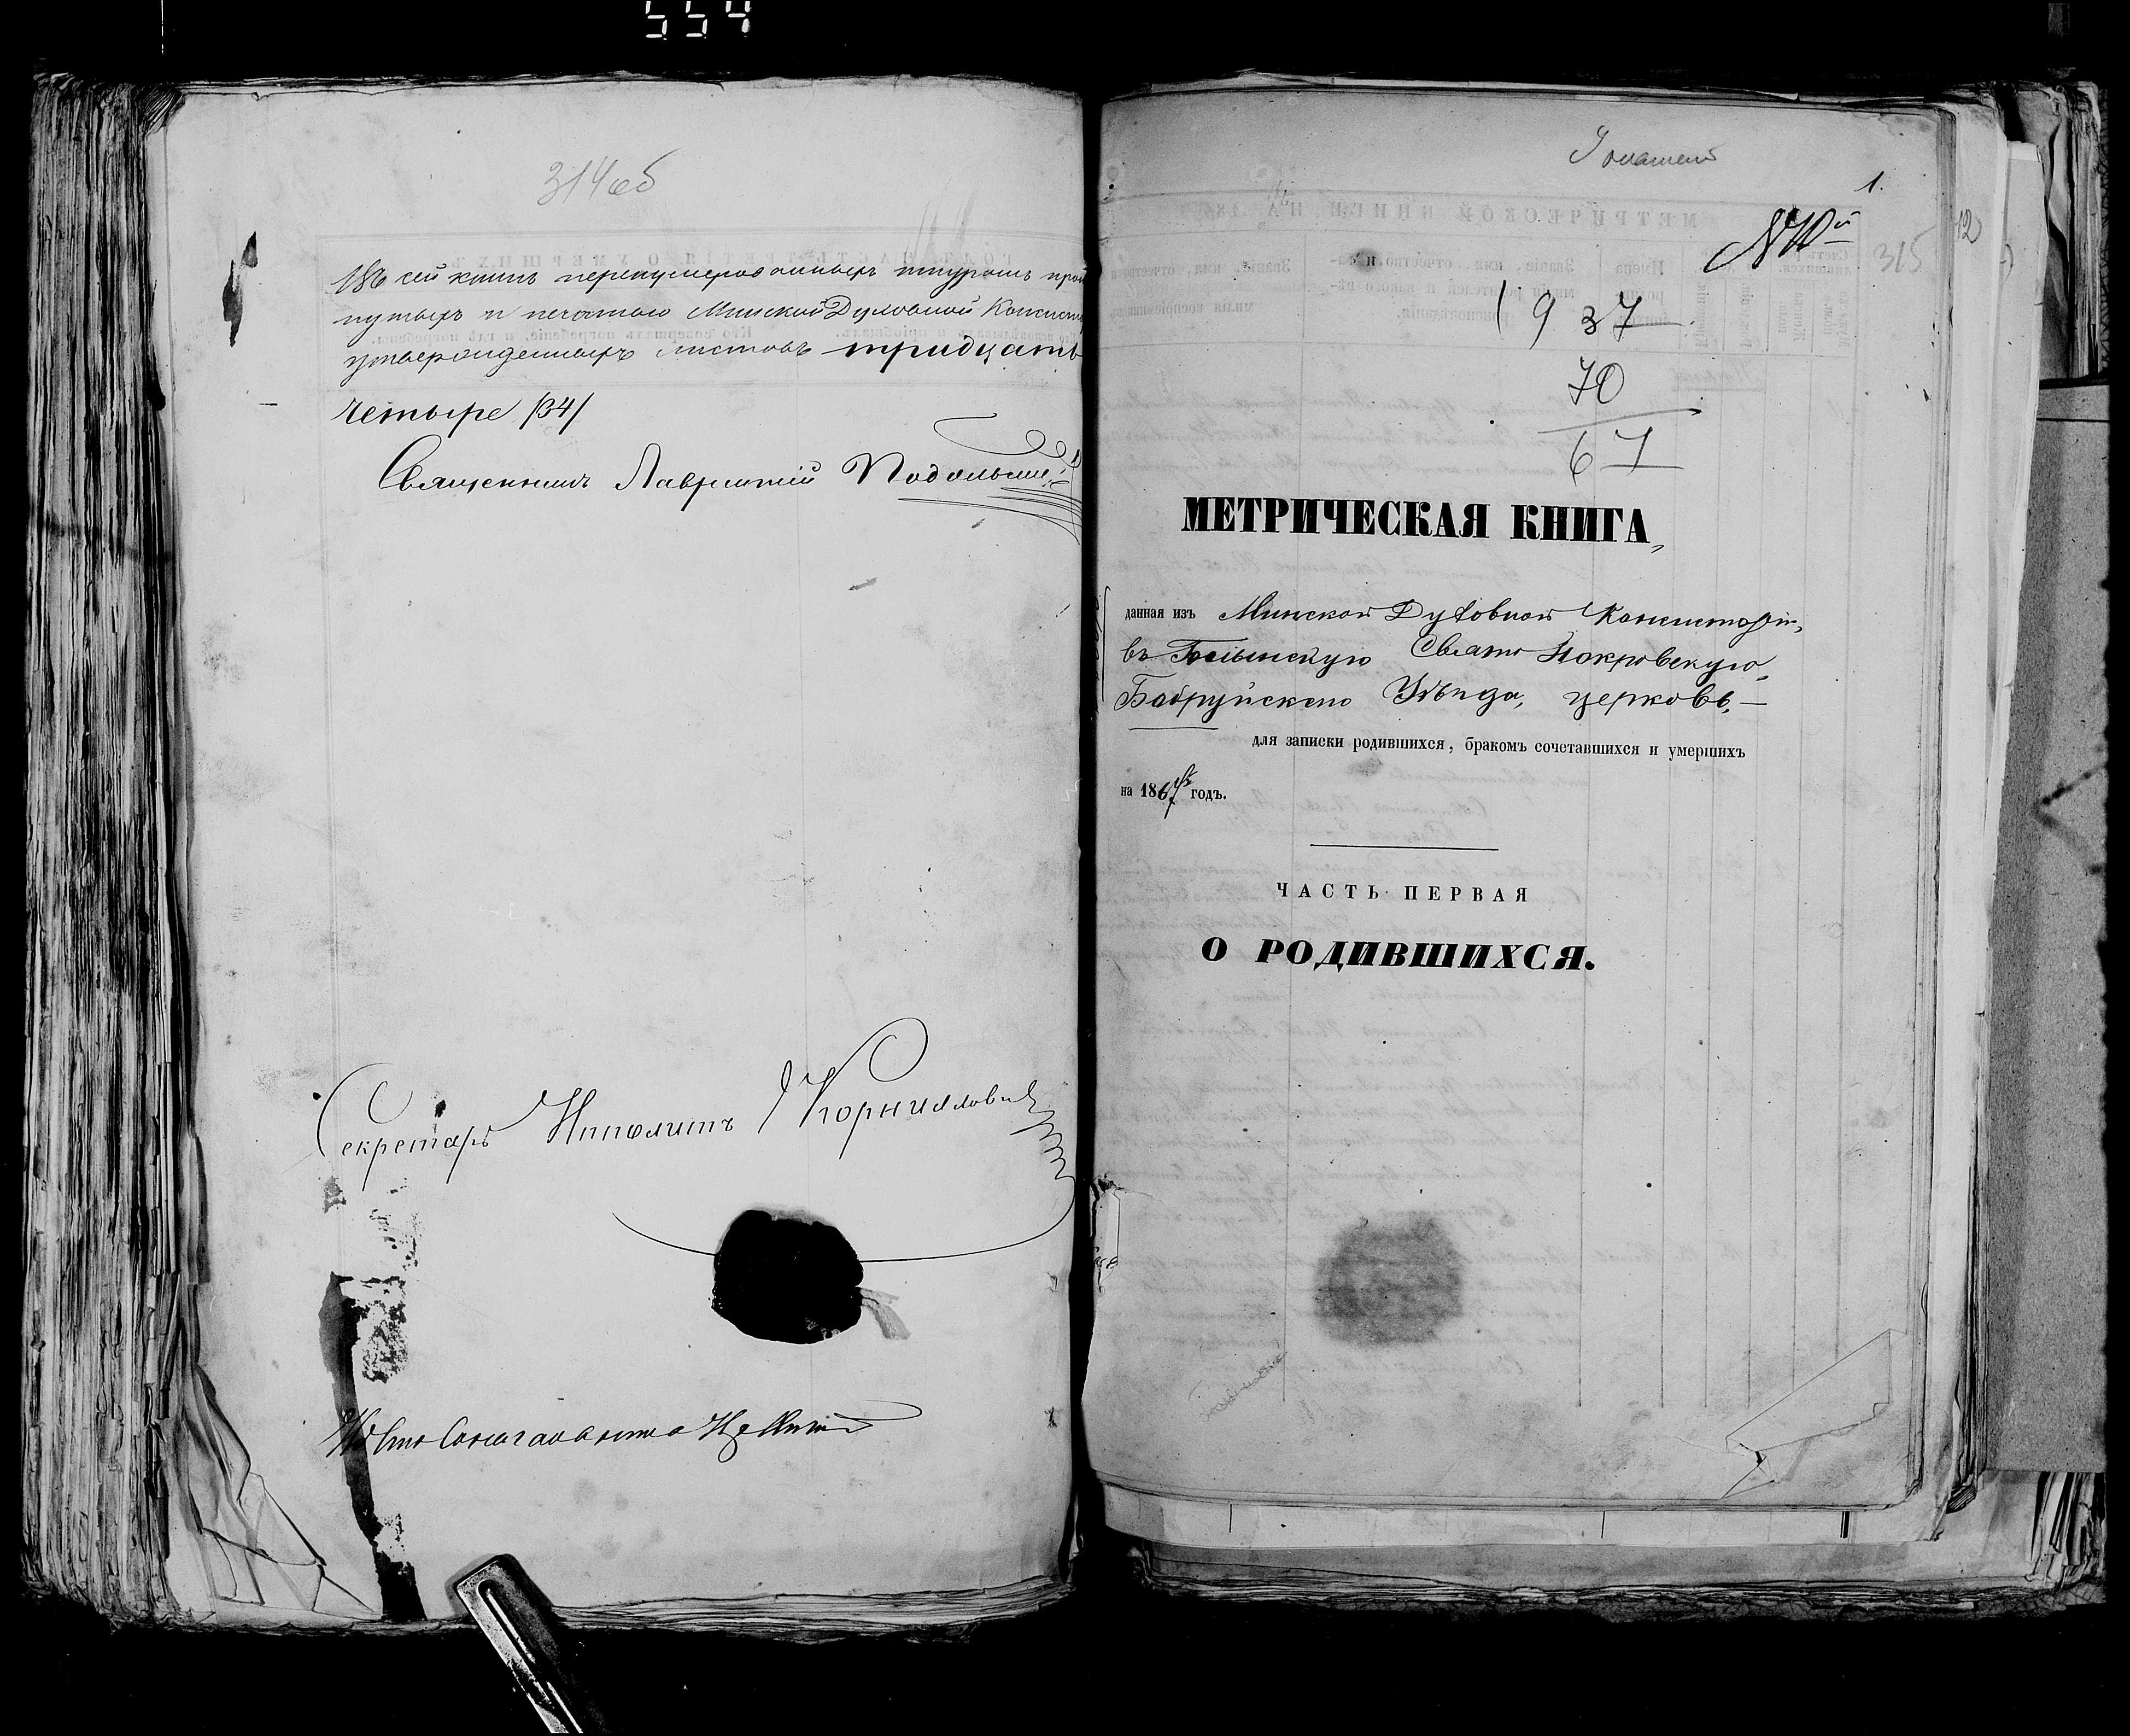 554
314 об
Въ сей книгѣ перенумерованныхъ шнуромъ про
нутыхъ и печатью Минской Духовной Консист
утвержденныхъ листовъ тридцать
четыре /34/
Священникъ Лаврентій Подольскій
Секретарь Ипполитъ Корниловичъ
1.
315
1937
70
67
МЕТРИЧЕСКАЯ КНИГА,
данная изъ Минской Духовной Консисторіи,
въ Свято Покровскую,
Бобруйскаго Уѣзда, церковь,—
для записки родившихся, бракомъ сочетавшихся и умершихъ
на 1867й годъ.
ЧАСТЬ ПЕРВАЯ
О РОДИВШИХСЯ.